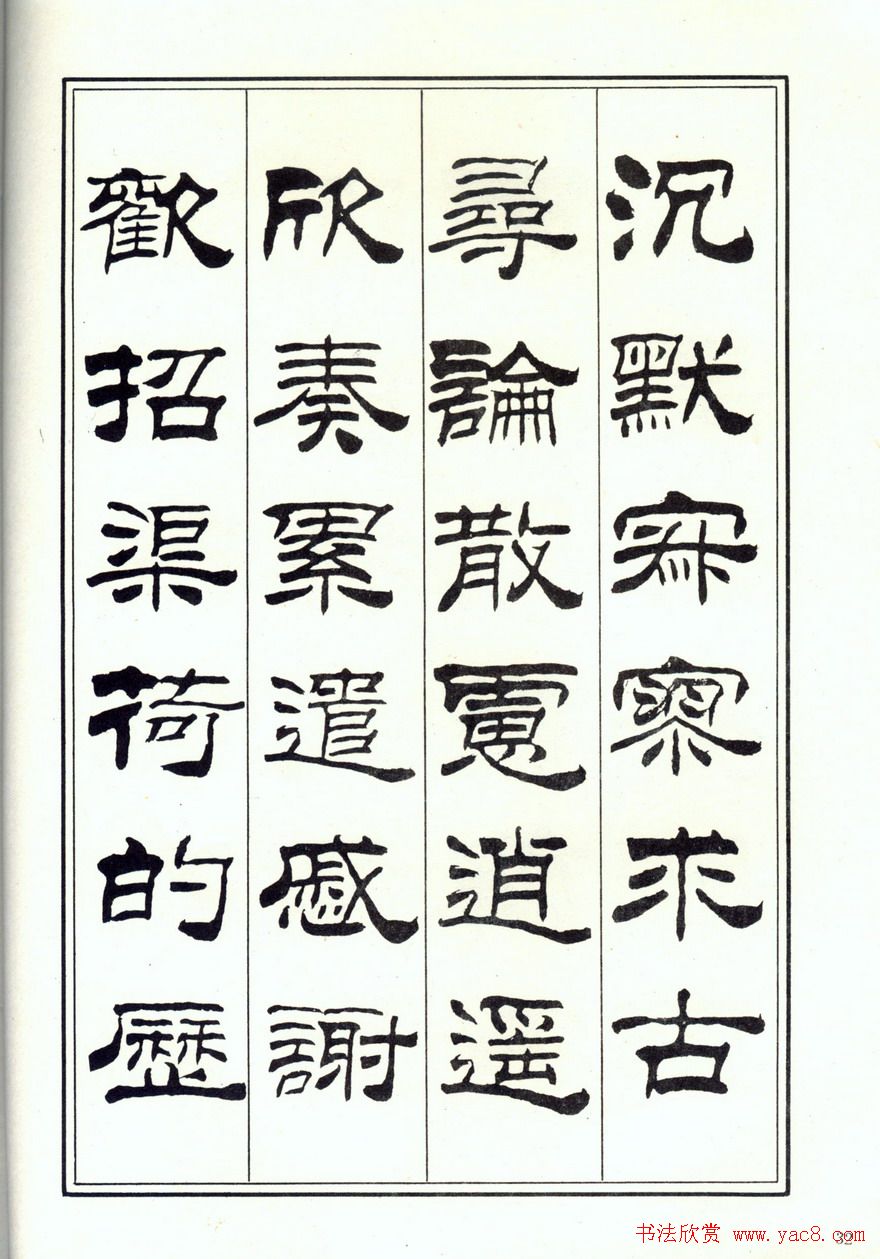 沉默寂寥求古
尋論散慮逍遙
欣奏累遣慼謝
歡招渠荷的歷
书法欣赏 www.yac8.com
32